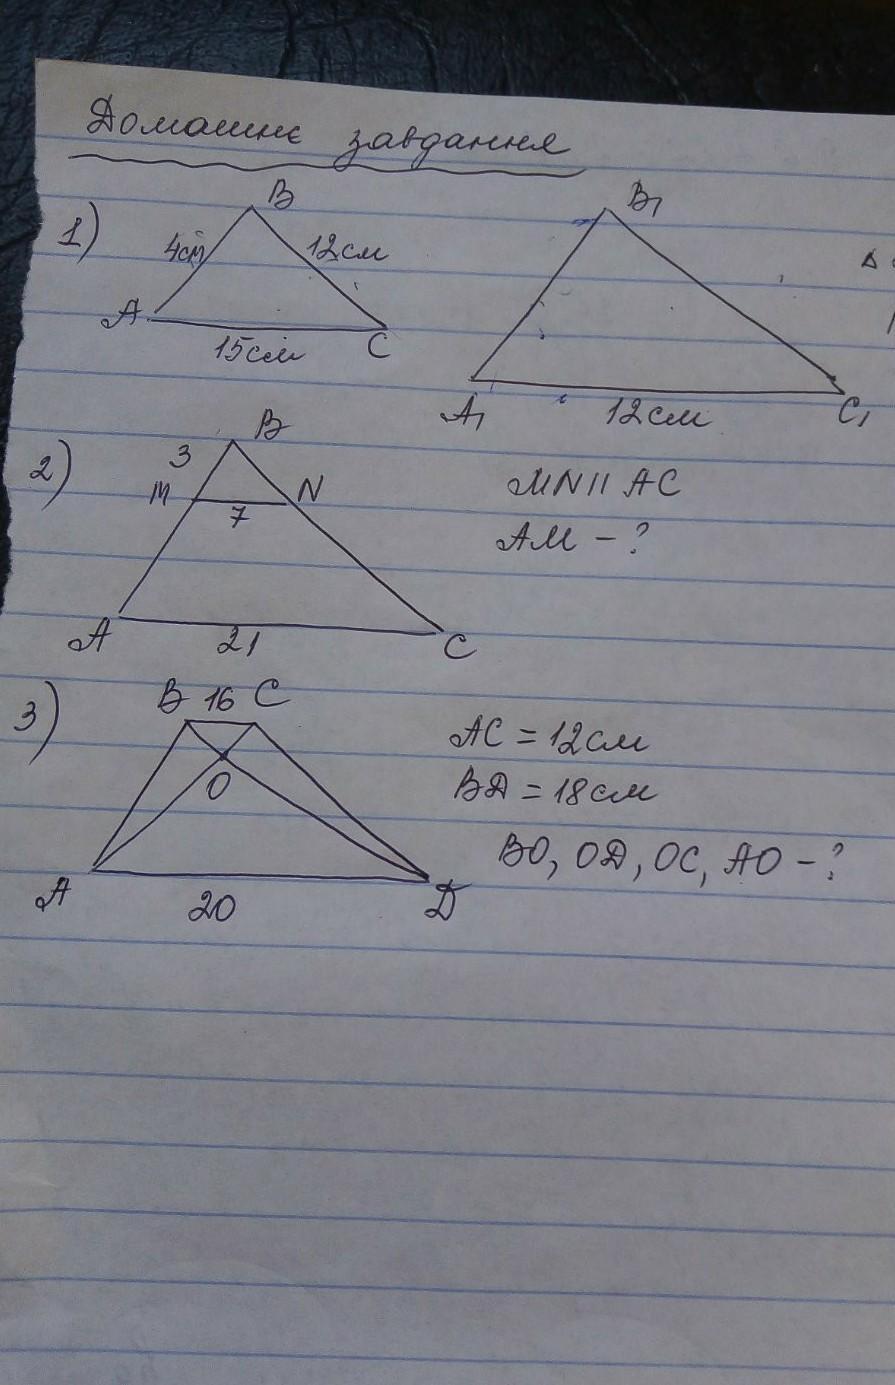 Домашнє завдання
1)
B
4см
12см
A
15см
C
B₁
A₁
12см
C₁
Δ
2)
B
3
M
N
7
A
21
C
MN || AC
AM - ?
3)
B 16 C
O
A
20
Д
AC = 12см
BД = 18см
BO, OД, OC, AO - ?